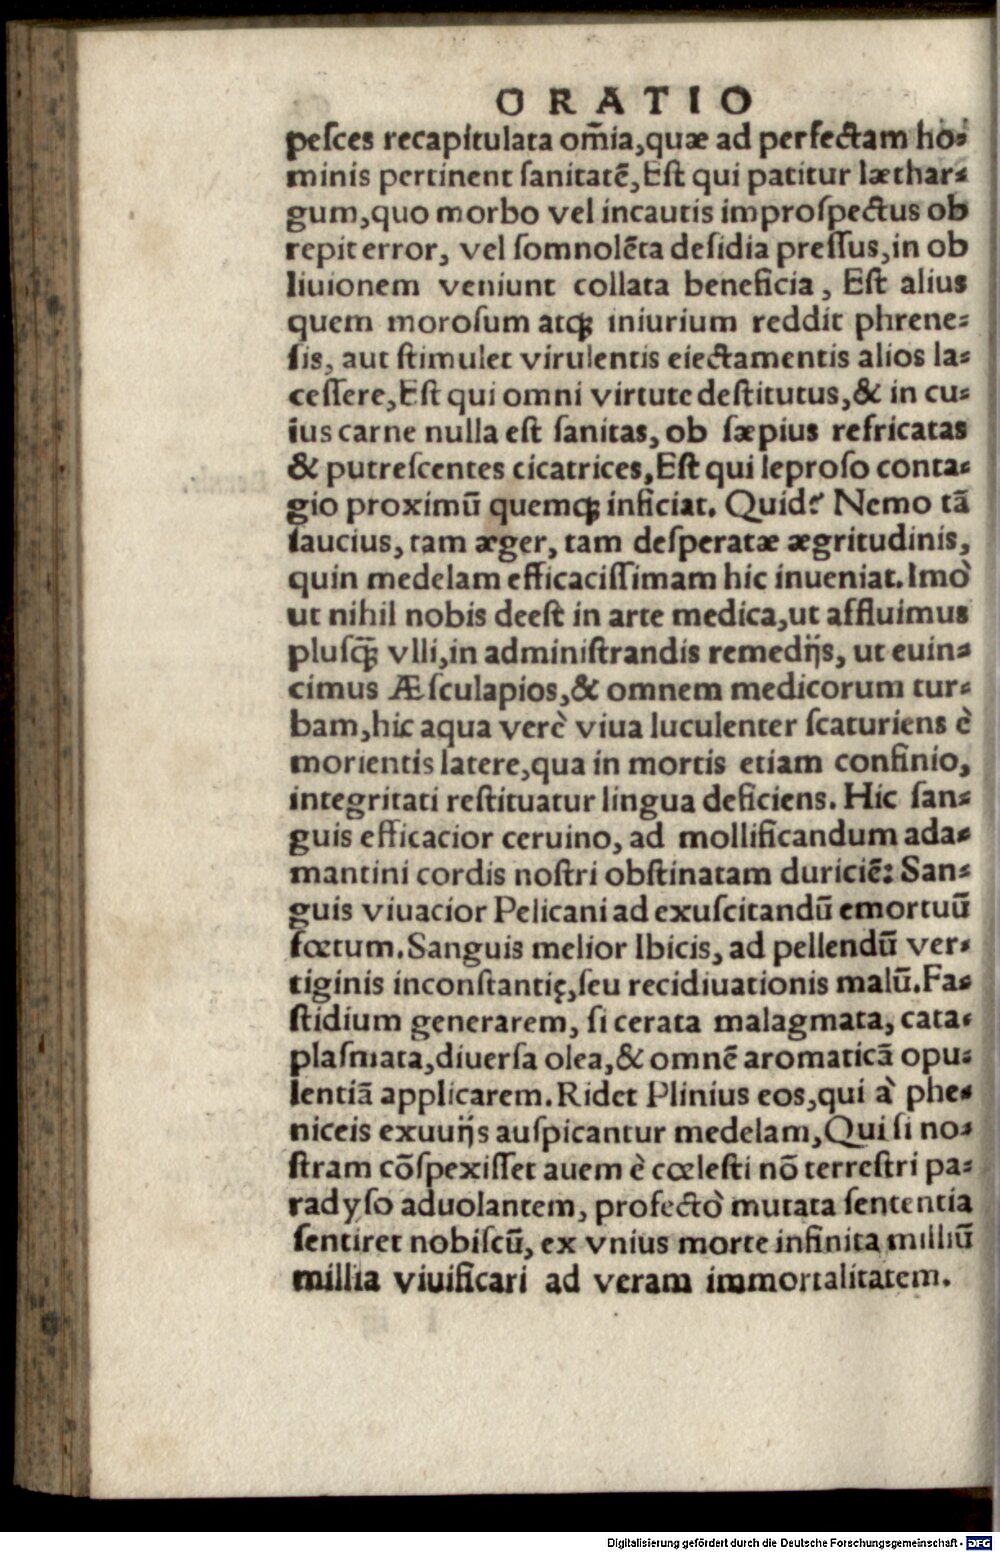 ORATIO
peſces recapitulata om̃ia,quæ ad perfectam ho⸗
minis pertinent ſanitatē,Eſt qui patitur læthar⸗
gum,quo morbo vel incautis improſpectus ob
repit error, vel ſomnolēta deſidia preſſus,in ob
liuionem veniunt collata beneficia, Eſt alius
quem moroſum atqꝫ iniurium reddit phrene⸗
ſis, aut ſtimulet virulentis eiectamentis alios la⸗
ceſſere,Eſt qui omni virtute deſtitutus,& in cu⸗
ius carne nulla eſt ſanitas, ob ſæpius refricatas
& putreſcentes cicatrices,Eſt qui leproſo conta⸗
gio proximū quemqꝫ inficiat. Quid? Nemo tā
ſaucius, tam æger, tam deſperatæ ægritudinis,
quin medelam efficaciſſimam hic inueniat. Imò
ut nihil nobis deeſt in arte medica,ut affluimus
pluſq̃ꝫ vlli,in adminiſtrandis remedijs, ut euin⸗
cimus Æſculapios,& omnem medicorum tur⸗
bam,hic aqua verè viua luculenter ſcaturiens è
morientis latere,qua in mortis etiam confinio,
integritati reſtituatur lingua deficiens. Hic ſan⸗
guis efficacior ceruino, ad mollificandum ada⸗
mantini cordis noſtri obſtinatam duriciē: San⸗
guis viuacior Pelicani ad exuſcitandū emortuū
fœtum. Sanguis melior Ibicis, ad pellendū ver⸗
tiginis inconſtantię,ſeu recidiuationis malū.Fa⸗
ſtidium generarem, ſi cerata malagmata, cata⸗
plaſmata,diuerſa olea,& omnē aromaticā opu⸗
lentiā applicarem. Ridet Plinius eos,qui à phe⸗
niceis exuuijs auſpicantur medelam,Qui ſi no⸗
ſtram cōſpexiſſet auem è cœleſti nō terreſtri pa⸗
radyſo aduolantem, profectò mutata ſententia
ſentiret nobiſcū, ex vnius morte infinita milliū
millia viuificari ad veram immortalitatem.
Digitalisierung gefördert durch die Deutsche Forschungsgemeinschaft - DFG